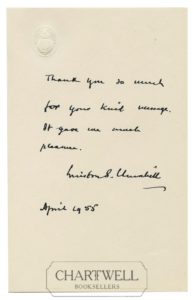 Thank you so much
for your kind message.
It gave me much
pleasure.
Winston S. Churchill
April 1955
CHARTWELL
BOOKSELLERS